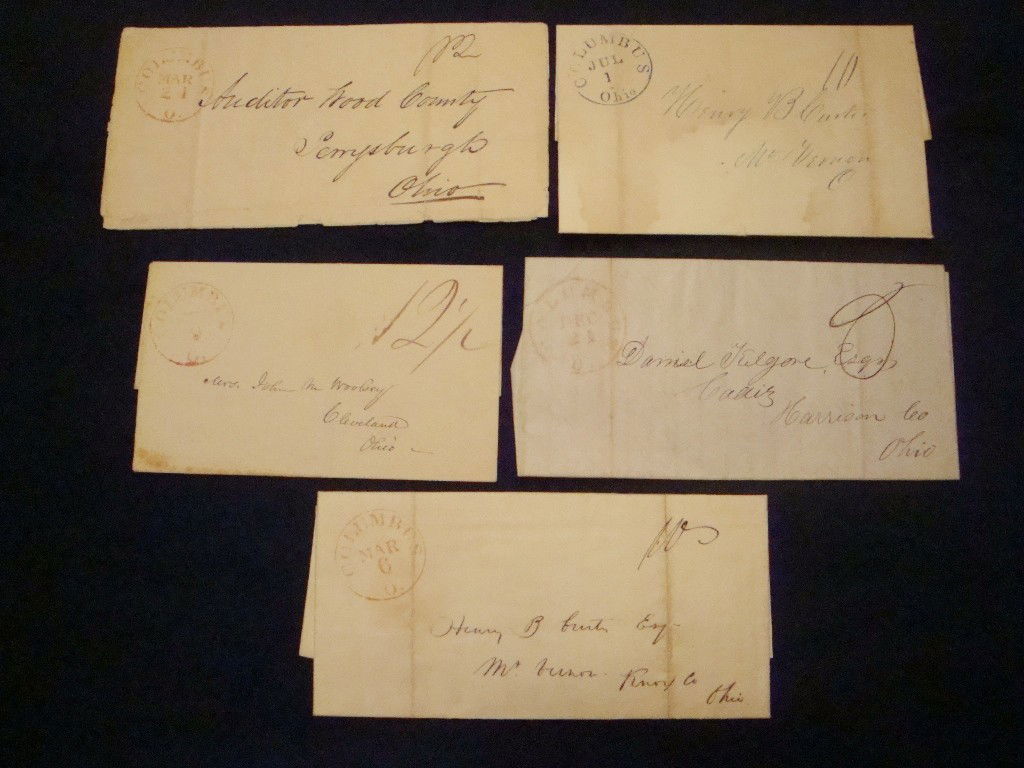 COLUMBUS
MAR
O.
Auditor Wood County
Perrysburgh
Ohio
COLUMBUS
JUL
1
Ohio
10
Henry B Curtis
Mt Vernon
O
COLUMBU
12½
Mrs. John M Woolsey
Cleveland
Ohio
COLUMB
DEC
21
O.
Daniel Kilgore, Esqr
Cadiz
Harrison Co
Ohio
COLUMBUS
MAR
6
O.
10
Henry B Curtis Esq
Mt Vernon Knox Co
Ohio